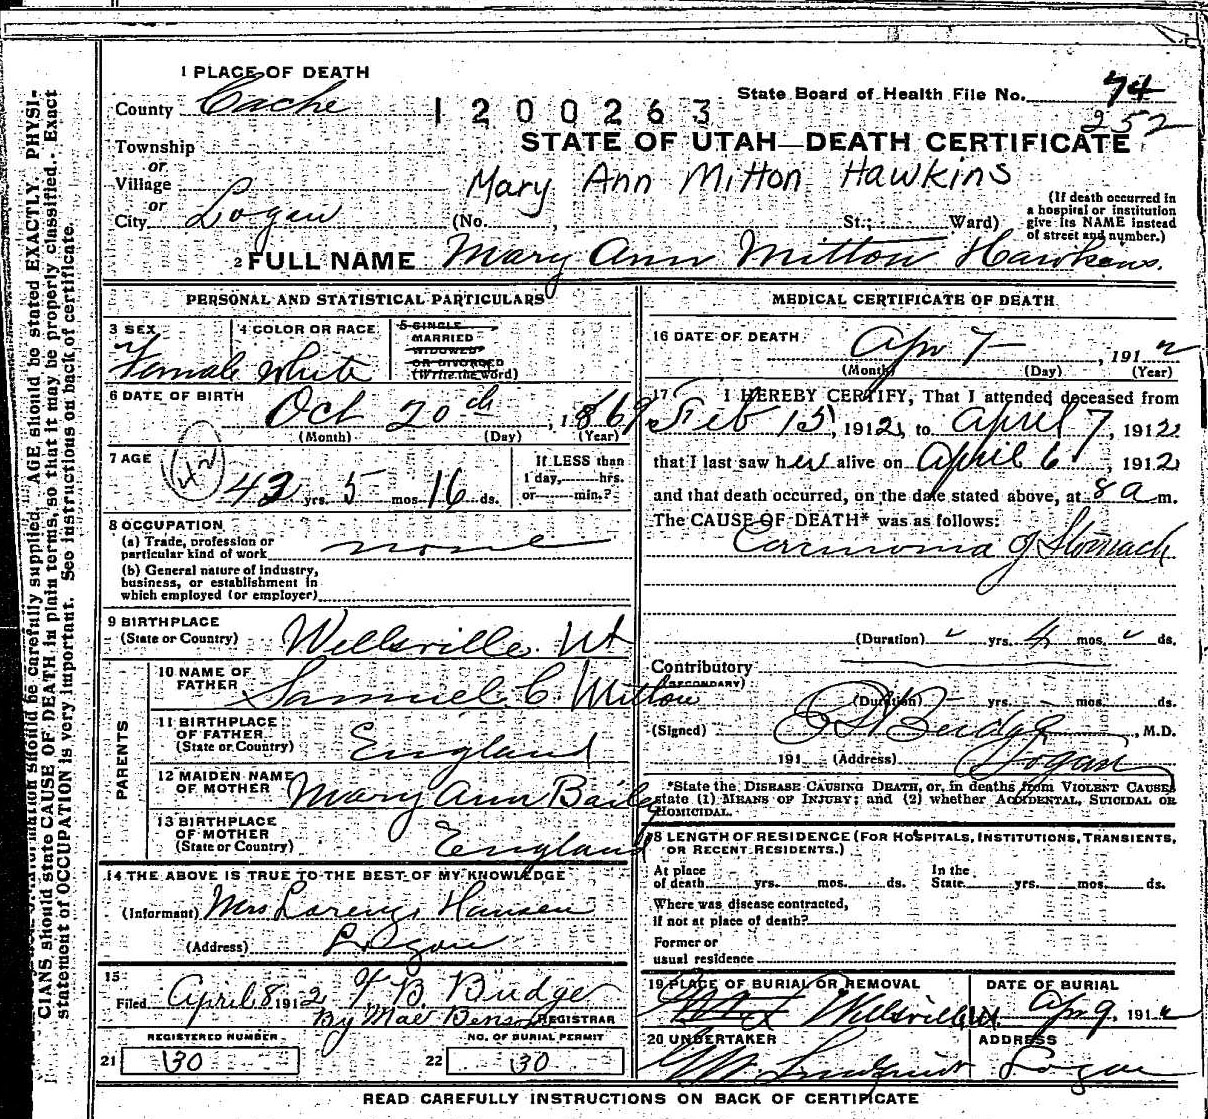 1 PLACE OF DEATH
County Cache
1200263
State Board of Health File No. 74
252
STATE OF UTAH—DEATH CERTIFICATE
Township
or
Village
or
City Logan
Mary Ann Mitton Hawkins
(No. , St.; Ward)
(If death occurred in
a hospital or institution
give its NAME instead
of street and number.)
2 FULL NAME Mary Ann Mitton Hawkins.
PERSONAL AND STATISTICAL PARTICULARS
3 SEX
Female
4 COLOR OR RACE
White
5 SINGLE
MARRIED
WIDOWED
OR DIVORCED
(Write the word)
6 DATE OF BIRTH
Oct 20th, 1869
(Month) (Day) (Year)
7 AGE
42
42 yrs. 5 mos. 16 ds.
If LESS than
1 day, hrs.
or min.?
8 OCCUPATION
(a) Trade, profession or
particular kind of work none
(b) General nature of industry,
business, or establishment in
which employed (or employer)
9 BIRTHPLACE
(State or Country) Wellsville. Ut
PARENTS
10 NAME OF
FATHER Samuel C Mitton
11 BIRTHPLACE
OF FATHER
(State or Country) England
12 MAIDEN NAME
OF MOTHER Mary Ann Bailey
13 BIRTHPLACE
OF MOTHER
(State or Country) England
14 THE ABOVE IS TRUE TO THE BEST OF MY KNOWLEDGE
(Informant) Mrs Lorenzo Hansen
(Address) Logan
15
Filed April 8 1912 T. B. Budge
By Mae Benson REGISTRAR
REGISTERED NUMBER
21 130
NO. OF BURIAL PERMIT
22 130
MEDICAL CERTIFICATE OF DEATH
16 DATE OF DEATH
Apr 7, 1912
(Month) (Day) (Year)
17 I HEREBY CERTIFY, That I attended deceased from
Feb 15, 1912, to April 7, 1912
that I last saw her alive on April 6, 1912
and that death occurred, on the date stated above, at 8 a m.
The CAUSE OF DEATH* was as follows:
Carcinoma of Stomach
(Duration) yrs. 4 mos. ds.
Contributory
(SECONDARY)
(Duration) yrs. mos. ds.
(Signed) Budge, M.D.
191 (Address) Logan
*State the DISEASE CAUSING DEATH, or, in deaths from VIOLENT CAUSES
state (1) MEANS OF INJURY; and (2) whether ACCIDENTAL, SUICIDAL OR
HOMICIDAL.
18 LENGTH OF RESIDENCE (FOR HOSPITALS, INSTITUTIONS, TRANSIENTS,
OR RECENT RESIDENTS.)
At place
of death yrs. mos. ds.
In the
State yrs. mos. ds.
Where was disease contracted,
if not at place of death?
Former or
usual residence
19 PLACE OF BURIAL OR REMOVAL
Wellsville Ut.
DATE OF BURIAL
Apr 9, 1912
20 UNDERTAKER
ADDRESS
Logan
READ CAREFULLY INSTRUCTIONS ON BACK OF CERTIFICATE
information should be carefully supplied. AGE should be stated EXACTLY. PHYSI-
CIANS should state CAUSE OF DEATH in plain terms, so that it may be properly classified. Exact
statement of OCCUPATION is very important. See instructions on back of certificate.